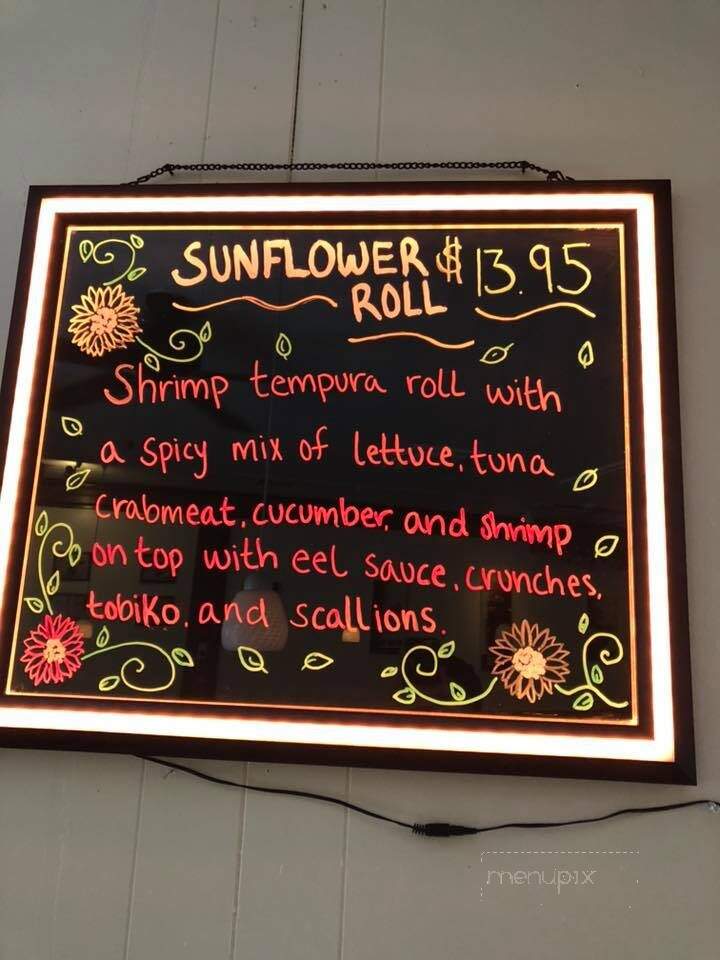 SUNFLOWER $13.95
ROLL
Shrimp tempura roll with
a spicy mix of lettuce, tuna
crabmeat, cucumber, and shrimp
on top with eel sauce, crunches,
tobiko, and scallions.
menupix